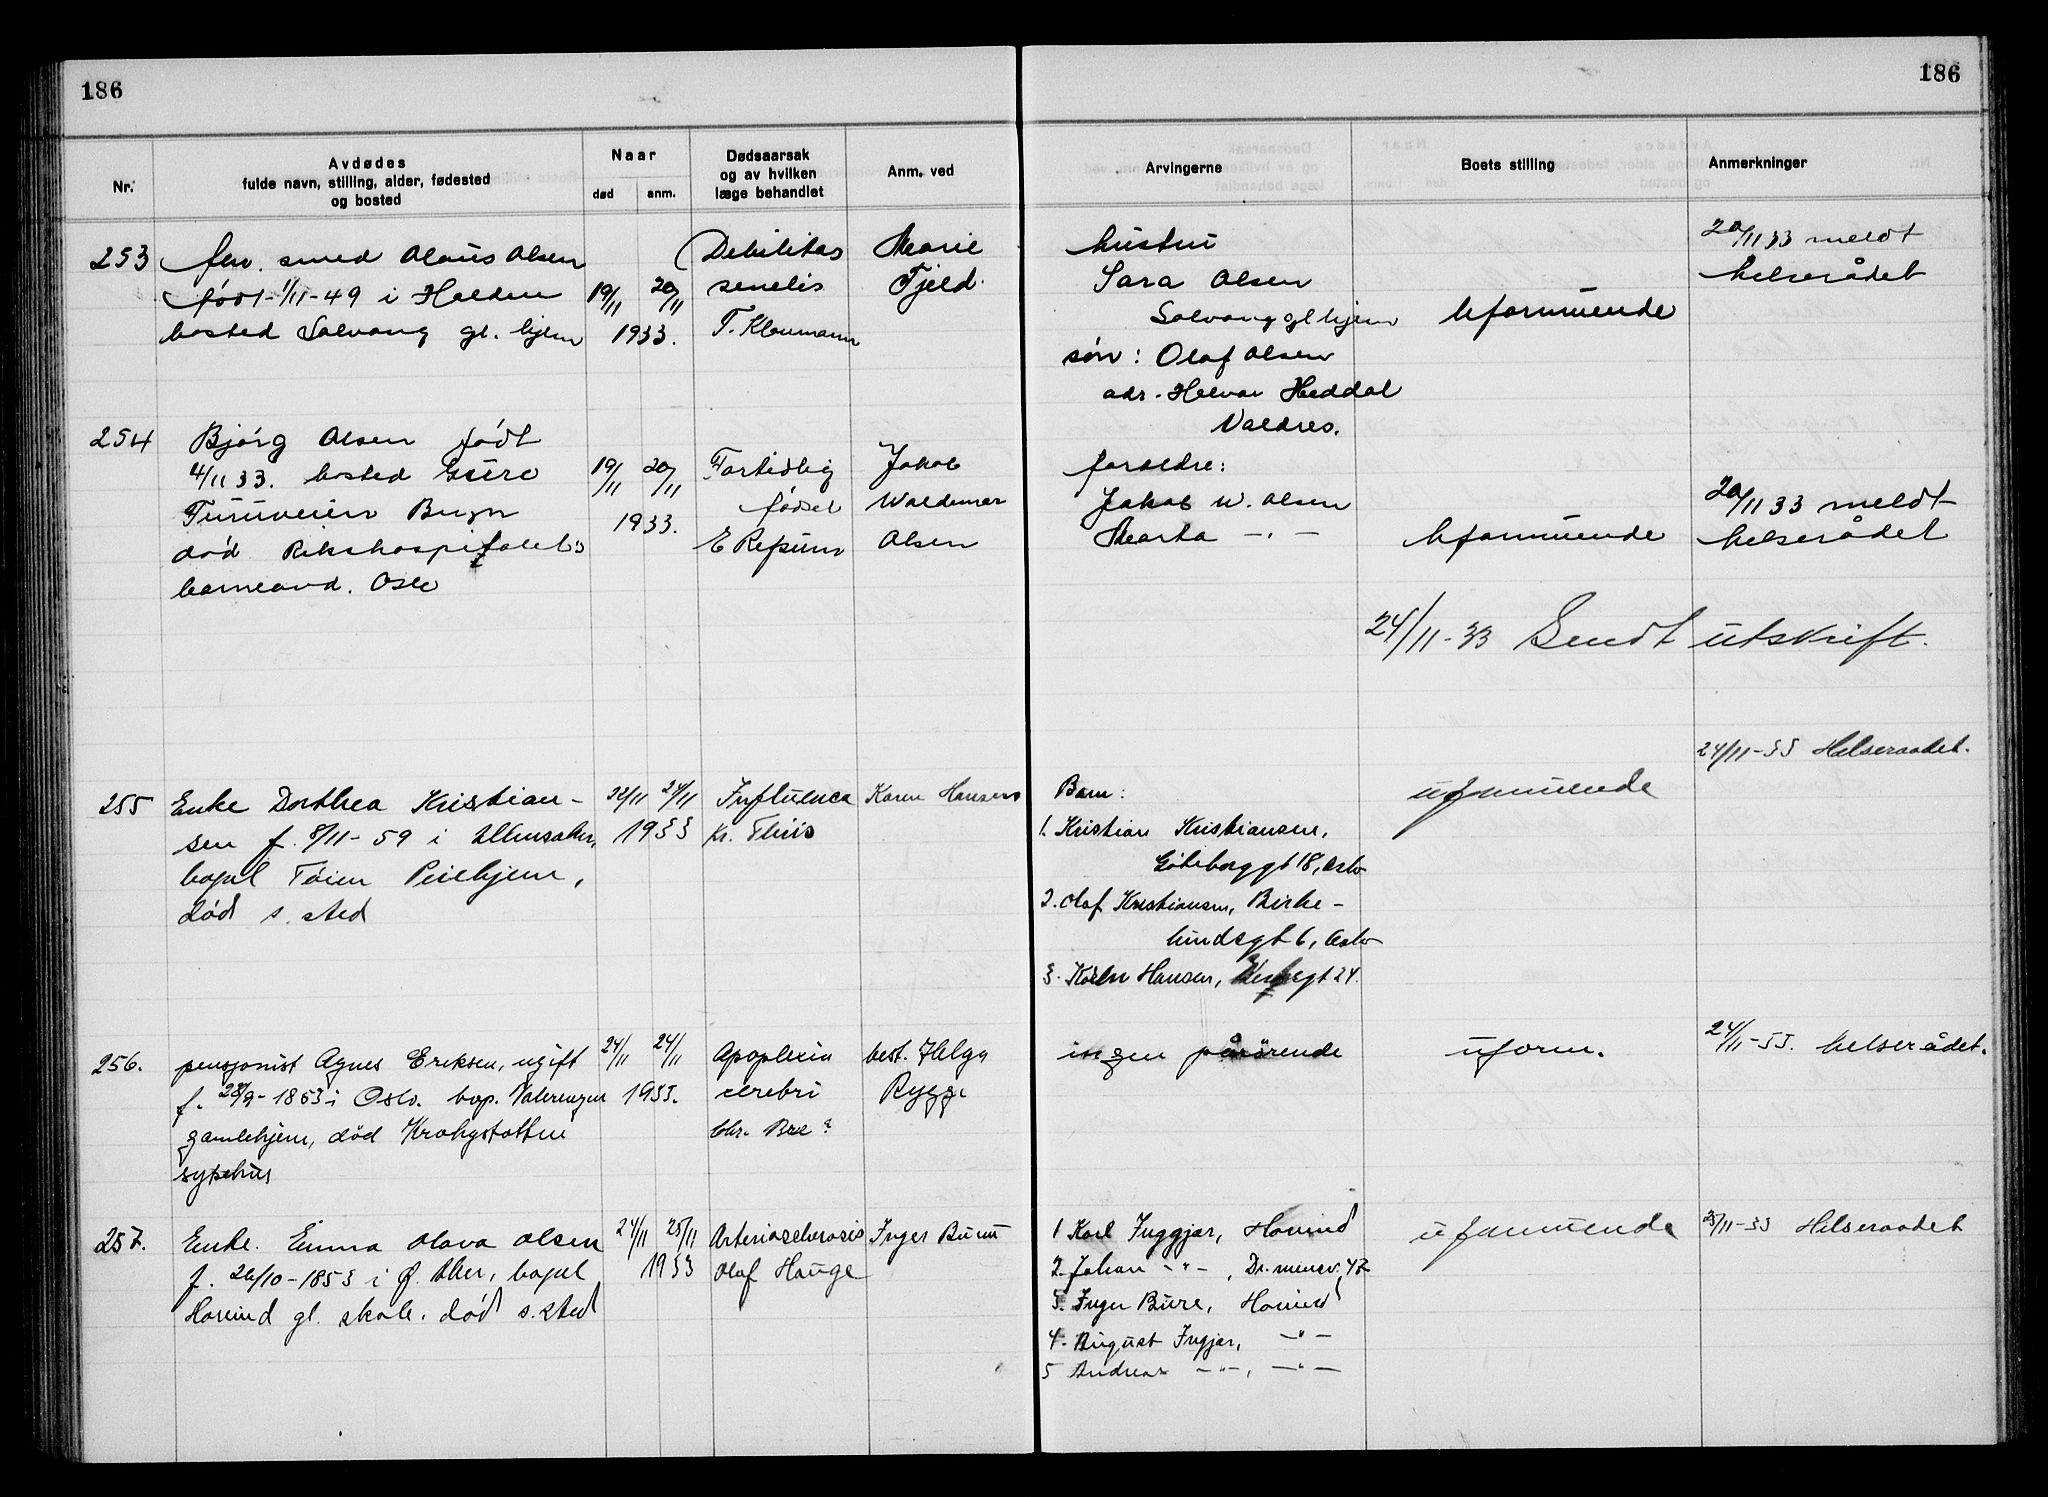 186
186
Nr.
Avdødes
fulde navn, stilling, alder, fødested
og bosted
Naar
død
anm.
Dødsaarsak
og av hvilken
læge behandlet
Anm. ved
Arvingerne
Boets stilling
Anmerkninger
253
fhv. smed Olaus Olsen
født 1/11-49 i Halden
bosted Solvang gl. hjem
19/11 20/11
1933.
Debilitas
senelis
T. Klaumann
Marie
Fjeld.
hustru
Sara Olsen
Solvang gl hjem
søn: Olaf Olsen
adr. Heddal
Valdres.
Uformuende
20/11 33 meldt
helserådet
254
Bjørg Olsen født
4/11 33. bosted
Furuveien Bryn
død Rikshospitalets
barneavd. Oslo
19/11 20/11
1933.
Fortidlig
fødsel
E Refsum
Jakob
Waldemar
Olsen
foreldre:
Jakob W. Olsen
Marta -"-
Uformuende
20/11 33 meldt
helserådet
24/11-33 Sendt utskrift.
255
Enke Dorthea Kristian-
sen f. 8/11-59 i Ullensaker,
bopel Tøien Pleiehjem,
død s. sted
22/11 24/11
1933
Influenca
Kr. Thiis
Karen Hansen
Barn:
1. Kristian Kristiansen,
Göteborggt 18, Oslo
2. Olaf Kristiansen, Birke-
lundsgt 6, Oslo
3. Karen Hansen, 24.
uformuende
24/11-33 Helseraadet.
256.
pensjonist Agnes Eriksen, ugift
f. 28/9-1853 i Oslo. bop. Valerengen
gamlehjem, død Krohgstøtten
sykehus
24/11 24/11
1933.
Apoplexia
cerebri
Chr. Bre?
best. Helga
Rygg.
ingen pårørende
uform.
24/11-33. helserådet.
257.
Enke. Emma Olava Olsen
f. 26/10-1853 i Ø. Aker, bopel
Hovind gl. skole. død s. sted
24/11 25/11
1933
Arteriosclerosis
Olaf Hauge
Inger Burum
1 Karl Inggjar, Hovind
2. Johan -"-, Dr.mensv. 47
3. Inger Bure, Hovind
4. August Ingjar, -"-
5 Andreas -"-, -"-
uformuende
25/11-33 Helseraadet